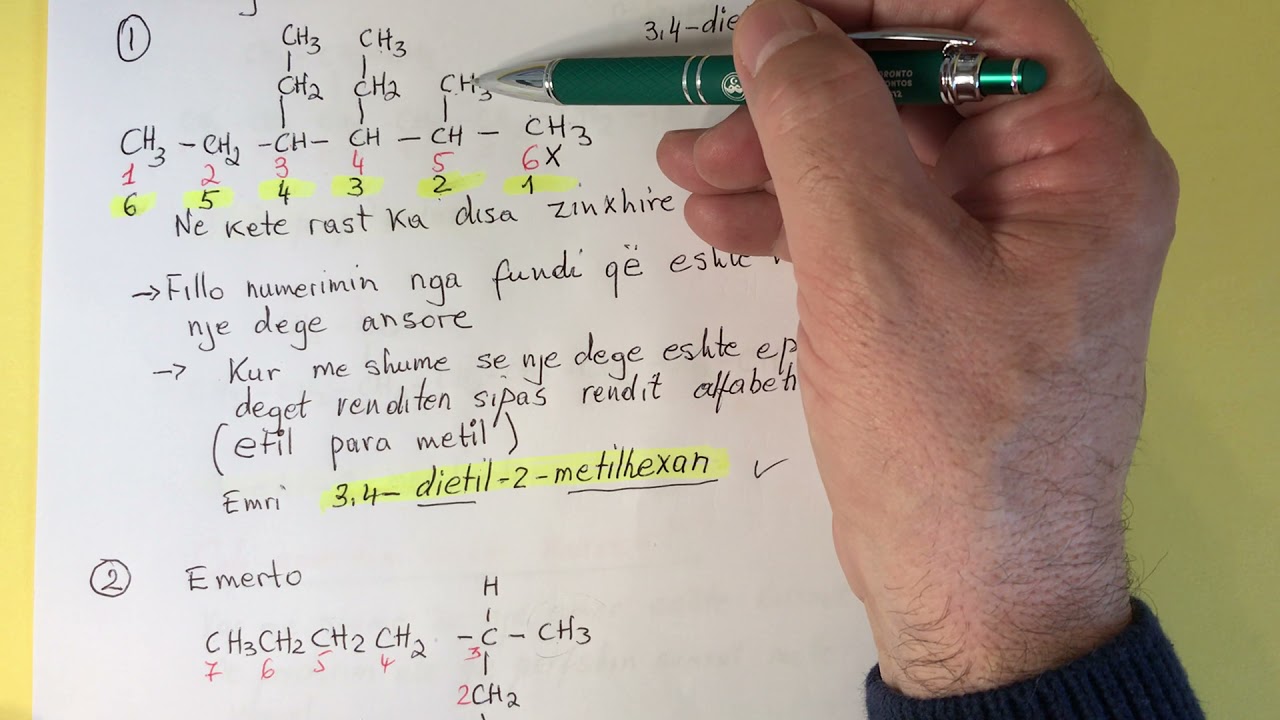 ①
CH3 CH3
CH2 CH2 CH3
CH3 - CH2 - CH - CH - CH - CH3
1 2 3 4 5 6X
6 5 4 3 2 1
3,4-die
Ne kete rast ka disa zinxhire
→ Fillo numerimin nga fundi që eshte
nje dege ansore
→ Kur me shume se nje dege eshte
deget renditen sipas rendit
(etil para metil)
Emri 3,4- dietil-2-metilhexan ✓
② Emerto
H
CH3CH2CH2CH2 - C - CH3
7 6 5 4 3
2CH2